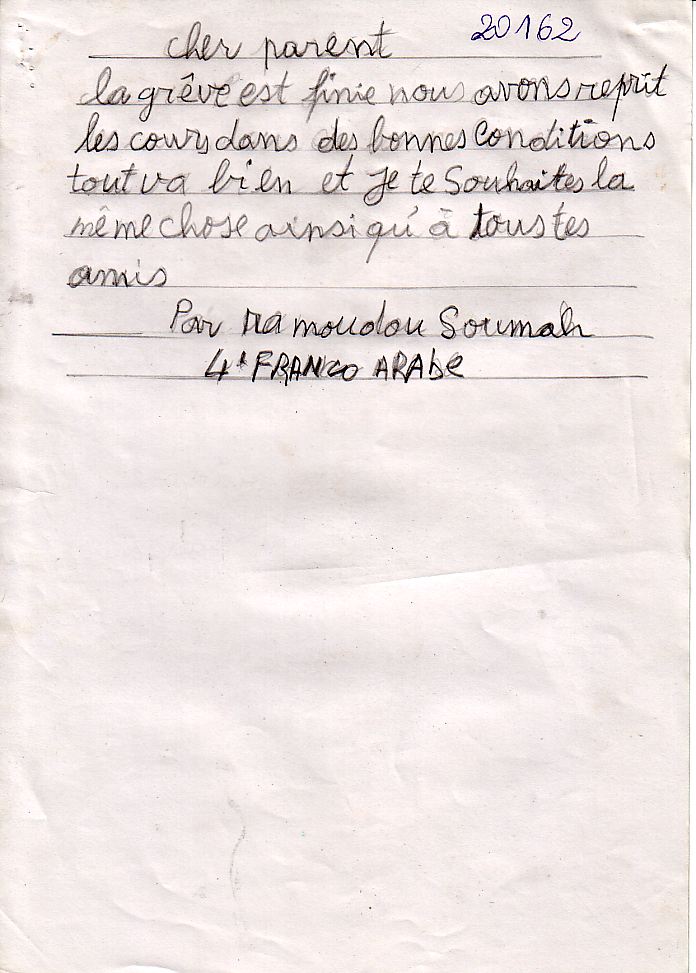 20162
cher parent
la grêve est finie nous avons reprit
les cours dans des bonnes Conditions
tout va bien et Je te Souhaites la
même chose ainsi qu'à tous tes
amis
Par Mamoudou Soumah
4e FRANCO ARABE